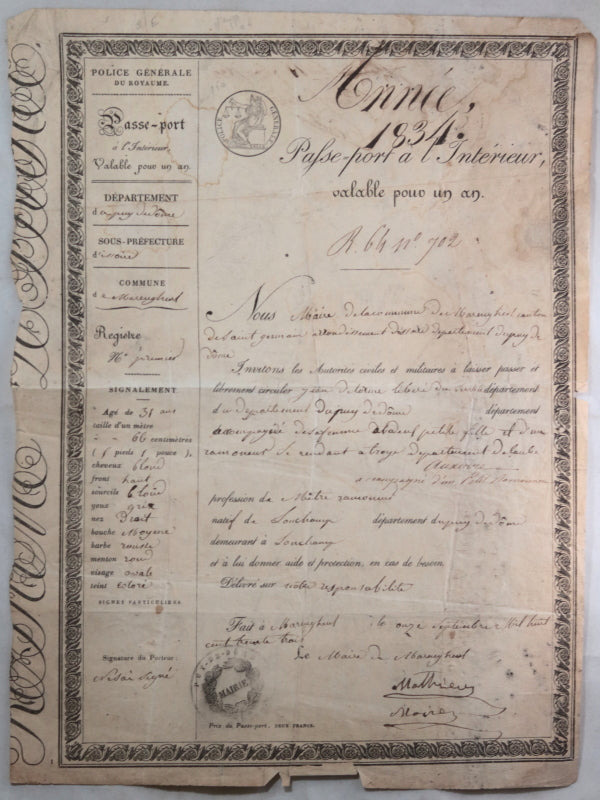 POLICE GÉNÉRALE
DU ROYAUME.
Passe-port
à l'Intérieur,
Valable pour un an.
DÉPARTEMENT
du puy de dôme
SOUS-PRÉFECTURE
d'issoire
COMMUNE
de
Registre
N.º premier
SIGNALEMENT
Agé de 31 ans
taille d'un mètre
66 centimètres
(5 pieds 1 pouce).
cheveux blond
front haut
sourcils blond
yeux gris
nez
bouche moyene
barbe rousse
menton rond
visage ovale
teint coloré
SIGNES PARTICULIERS
Signature du Porteur:
signé
POLICE GÉNÉRALE
Année,
1834.
Passe-port à l'Intérieur,
valable pour un an.
R. 64 nº 702
Nous Maire de la commune de canton
de Saint germain arrondissement departement du puy de
dôme
Invitons les Autorités civiles et militaires à laisser passer et
librement circuler département
du departement du puy de dôme département
accompagné de sa femme petite fille et d'un
ramoneur se rendant a troye departement de laube
profession de Mître ramoneur
natif de département du puy de dôme
demeurant à
et à lui donner aide et protection, en cas de besoin.
Délivré sur notre responsabilité
Fait à le onze septembre Mil huit
cent trente trois
Le Maire de
MAIRIE
Mathieu
Maire
Prix du Passe-port: DEUX FRANCS.